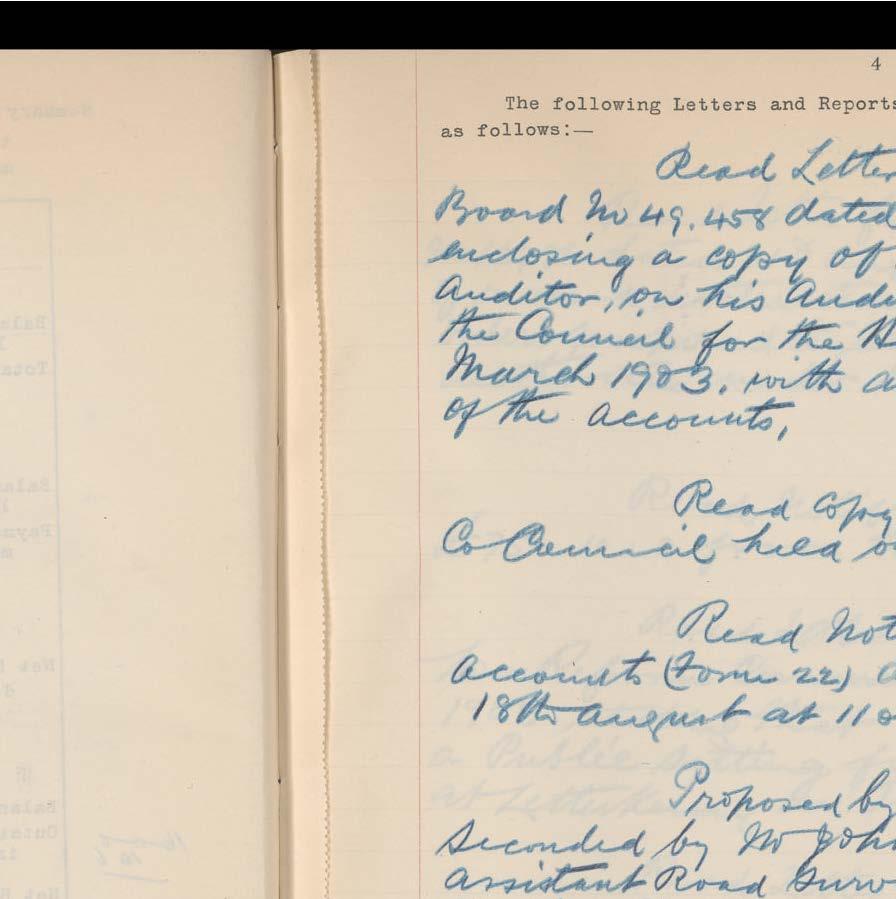 4
The following Letters and Reports
as follows:—
Read Letter
Board No 49.458 dated
enclosing a copy of
Auditor, on his Audi
the Council for the H
March 1903. with a
of the accounts,
Read Copy
Co Council held o
Read Not
Accounts (Form 22) a
18th August at 11 o
Proposed by
Seconded by Mr John
Assistant Road Surv